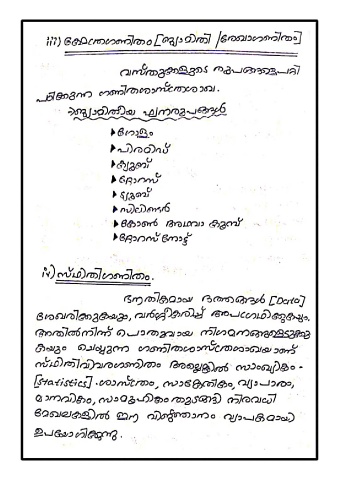 iii) ക്ഷേത്രഗണിതം [ജ്യാമിതി / രേഖാഗണിതം]
വസ്തുക്കളുടെ രൂപങ്ങളെപറ്റി
പഠിക്കുന്ന ഗണിതശാസ്ത്രശാഖ.
ജ്യാമിതീയ ഘനരൂപങ്ങൾ
ഗോളം
പിരമിഡ്
ക്യൂബ്
ടോറസ്
ട്യൂബ്
സിലിണ്ടർ
കോൺ അഥവാ കൂമ്പ്
ടോറസ്നോട്ട്
iv) സ്ഥിതിഗണിതം.
ഭൗതികമായ ദത്തങ്ങൾ [Data]
ശേഖരിക്കുകയും, വർഗ്ഗീകരിച്ച് അപഗ്രഥിക്കുകയും,
അതിൽനിന്ന് പൊതുവായ നിഗമനങ്ങളെടുക്കു
കയും ചെയ്യുന്ന ഗണിതശാസ്ത്രശാഖയാണ്
സ്ഥിതിവിവരഗണിതം അല്ലെങ്കിൽ സാംഖ്യികം -
[Statistics]. ശാസ്ത്രം, സാങ്കേതികം, വ്യാപാരം,
മാനവികം, സാമൂഹികം തുടങ്ങി നിരവധി
മേഖലകളിൽ ഈ വിജ്ഞാനം വ്യാപകമായി
ഉപയോഗിക്കുന്നു.